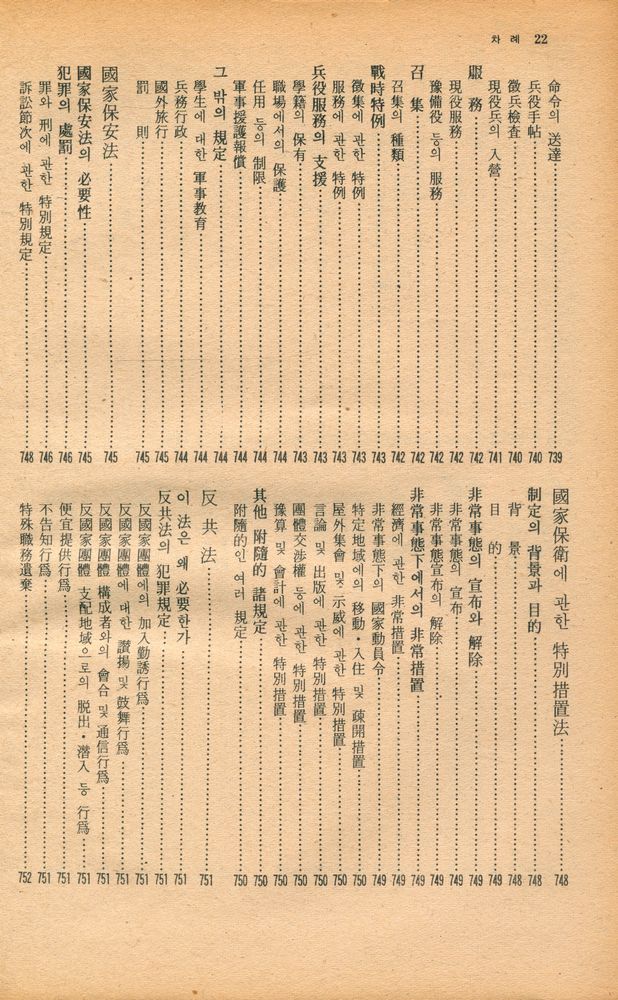 차 례 22
命令의 送達 739
兵役手帖 740
徵兵檢査 740
現役兵의 入營 741
服 務 742
現役服務 742
豫備役 등의 服務 742
召 集 742
召集의 種類 742
戰時特例 743
徵集에 관한 特例 743
服務에 관한 特例 743
兵役服務의 支援 743
學籍의 保有 743
職場에서의 保護 744
任用 등의 制限 744
軍事援護報償 744
그 밖의 規定 744
學生에 대한 軍事敎育 744
兵務行政 744
國外旅行 745
罰 則 745
國家保安法 745
國家保安法의 必要性 745
犯罪의 處罰 746
罪와 刑에 관한 特別規定 746
訴訟節次에 관한 特別規定 748
國家保衛에 관한 特別措置法 748
制定의 背景과 目的 748
背 景 748
目 的 749
非常事態의 宣布와 解除 749
非常事態의 宣布 749
非常事態宣布의 解除 749
非常事態下에서의 非常措置 749
經濟에 관한 非常措置 749
非常事態下의 國家動員令 749
特定地域에의 移動・入住 및 疎開措置 750
屋外集會 및 示威에 관한 特別措置 750
言論 및 出版에 관한 特別措置 750
團體交涉權 등에 관한 特別措置 750
豫算 및 會計에 관한 特別措置 750
其他 附隨的 諸規定 750
附隨的인 여러 規定 750
反 共 法 751
이 法은 왜 必要한가 751
反共法의 犯罪規定 751
反國家團體에의 加入勸誘行爲 751
反國家團體에 대한 讚揚 및 鼓舞行爲 751
反國家團體 構成者와의 會合 및 通信行爲 751
反國家團體 支配地域으로의 脫出・潛入 등 行爲 751
便宜提供行爲 751
不告知行爲 751
特殊職務遺棄 752